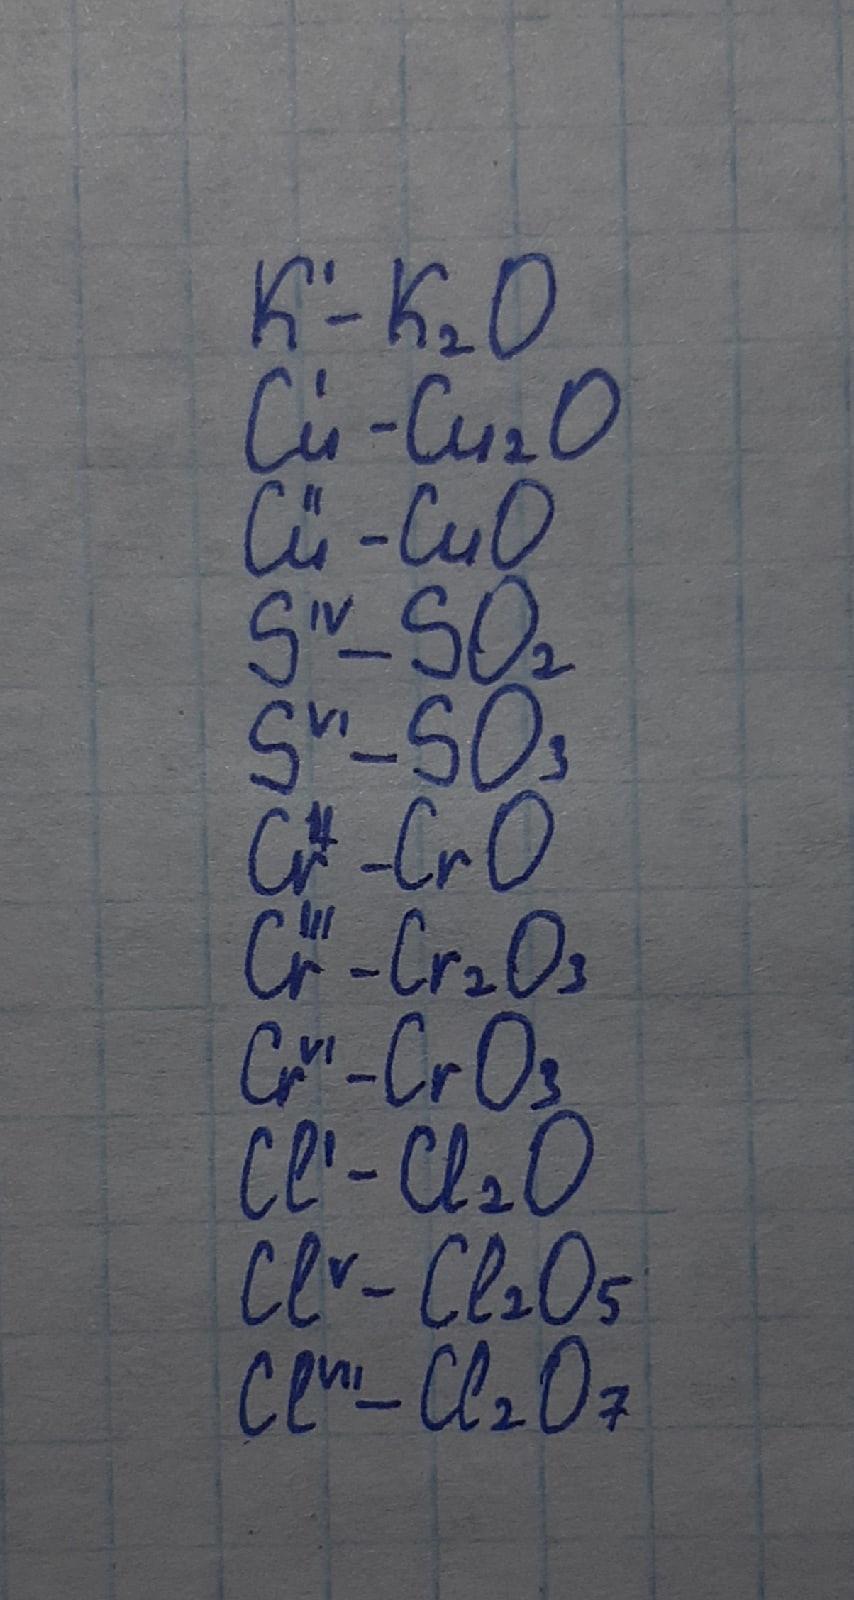 Kᴵ - K₂O
Cuᴵ - Cu₂O
Cuᴵᴵ - CuO
Sᴵⱽ - SO₂
Sⱽᴵ - SO₃
Crᴵᴵ - CrO
Crᴵᴵᴵ - Cr₂O₃
Crⱽᴵ - CrO₃
Clᴵ - Cl₂O
Clⱽ - Cl₂O₅
Clⱽᴵᴵ - Cl₂O₇